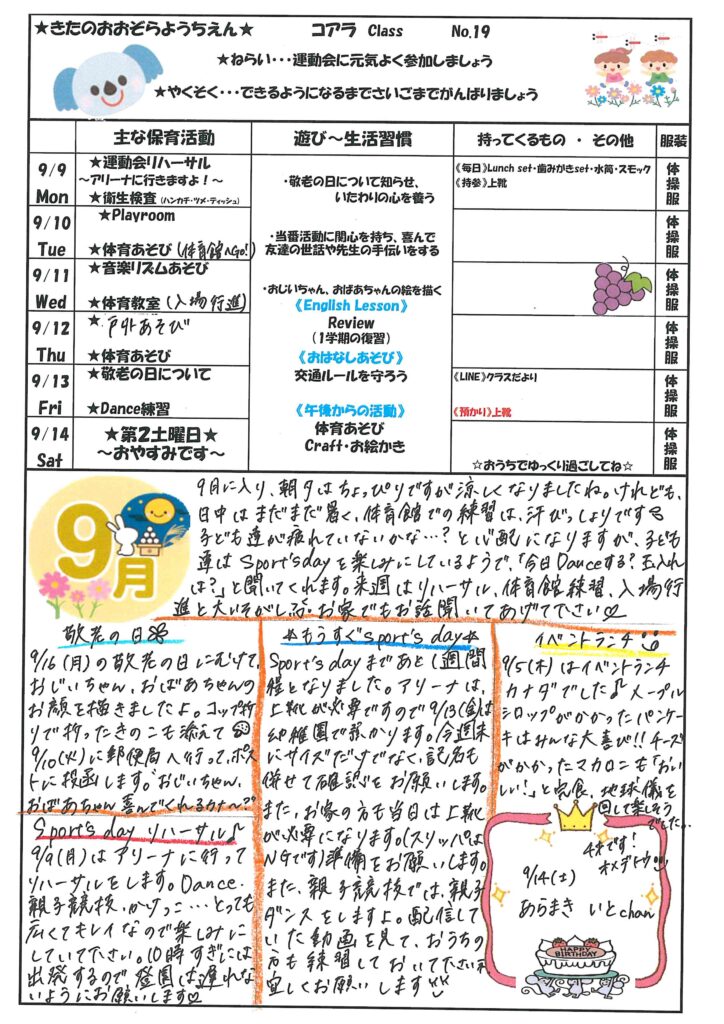 ★きたのおおぞらようちえん★ コアラ Class No.19
★ねらい・・・運動会に元気よく参加しましょう
★やくそく・・・できるようになるまでさいごまでがんばりましょう
主な保育活動 遊び～生活習慣 持ってくるもの ・ その他 服装
9/9 Mon
★運動会リハーサル
～アリーナに行きますよ！～
★衛生検査（ハンカチ・ツメ・ティッシュ）
9/10 Tue
★Playroom
★体育あそび(体育館へGo!)
9/11 Wed
★音楽リズムあそび
★体育教室(入場行進)
9/12 Thu
★戸外あそび
★体育あそび
9/13 Fri
★敬老の日について
★Dance練習
9/14 Sat
★第2土曜日★
～おやすみです～
・敬老の日について知らせ、
いたわりの心を養う
・当番活動に関心を持ち、喜んで
友達の世話や先生の手伝いをする
・おじいちゃん、おばあちゃんの絵を描く
《English Lesson》
Review
(1学期の復習)
《おはなしあそび》
交通ルールを守ろう
《午後からの活動》
体育あそび
Craft・お絵かき
《毎日》Lunch set・歯みがきset・水筒・スモック
《持参》上靴
《LINE》クラスだより
《預かり》上靴
☆おうちでゆっくり過ごしてね☆
体操服
体操服
体操服
体操服
体操服
体操服
9月
9月に入り、朝夕はちょっぴりですが涼しくなりましたね。けれども、
日中はまだまだ暑く、体育館での練習は、汗びっしょりです
子ども達が疲れていないかな…？と心配になりますが、子ども
達はSport'sdayを楽しみにしているようで、「今日Danceする？玉入れ
は？」と聞いてくれます。来週はリハーサル、体育館練習、入場行
進と大いそがし。お家でもお話聞いてあげて下さい♡
敬老の日
9/16(月)の敬老の日にむけて、
おじいちゃん、おばあちゃんの
お顔を描きましたよ。コップ折り
で折ったきのこも添えて
9/10(火)に郵便局へ行って、ポス
トに投函します。おじいちゃん、
おばあちゃん喜んでくれるかな～??
Sport's day リハーサル♪
9/9(月)はアリーナに行って
リハーサルをします。Dance、
親子競技、かけっこ…とっても
広くてキレイなので楽しみに
していて下さい。10時すぎには
出発するので、登園は遅れな
いようにお願いします♡
*もうすぐsport's day*
Sport's dayまであと1週間
程となりました。アリーナは、
上靴が必要ですので9/13(金)は
幼稚園で預かります。今週末
にサイズだけでなく、記名も
併せて確認をお願いします。
また、お家の方も当日は上靴
が必要になります。(スリッパは
NGです)準備をお願いします。
また、親子競技では、親子
ダンスをしますよ。配信して
いた動画を見て、おうちの
方も練習しておいて下さい
宜しくお願いします
イベントランチ
9/5(木)はイベントランチ
カナダでした♪メープル
シロップがかかったパンケー
キはみんな大喜び!!チーズ
がかかったマカロニも「おい
しい！」と完食。地球儀を
回して楽しそう
でした…
4才です！
オメデトウ
9/14(土)
あらまき いとchan
HAPPY BIRTHDAY